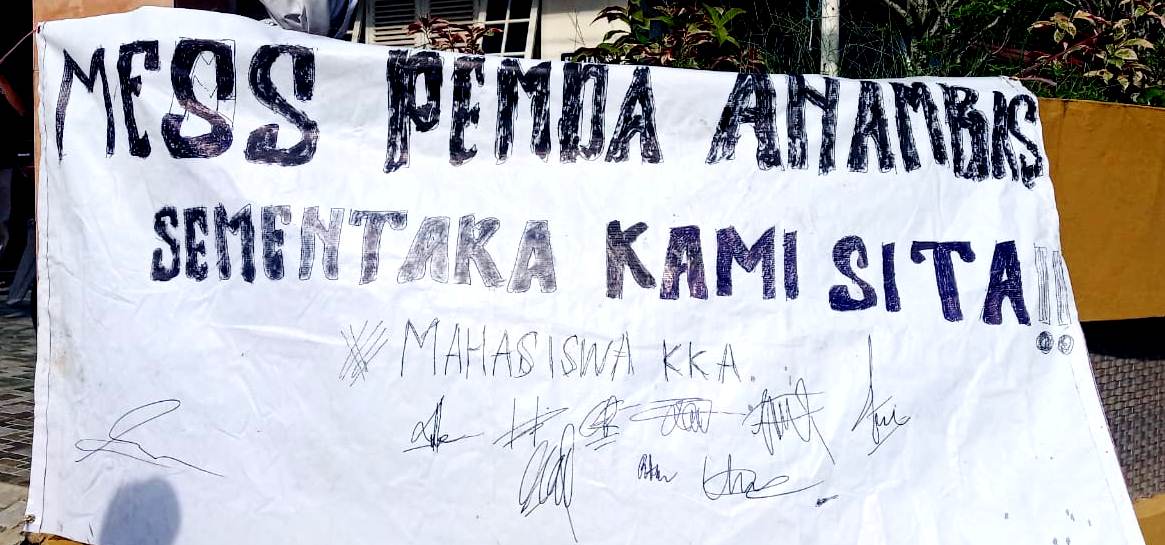 MESS PEMDA ANAMBAS
SEMENTARA KAMI SITA!!
MAHASISWA KKA.